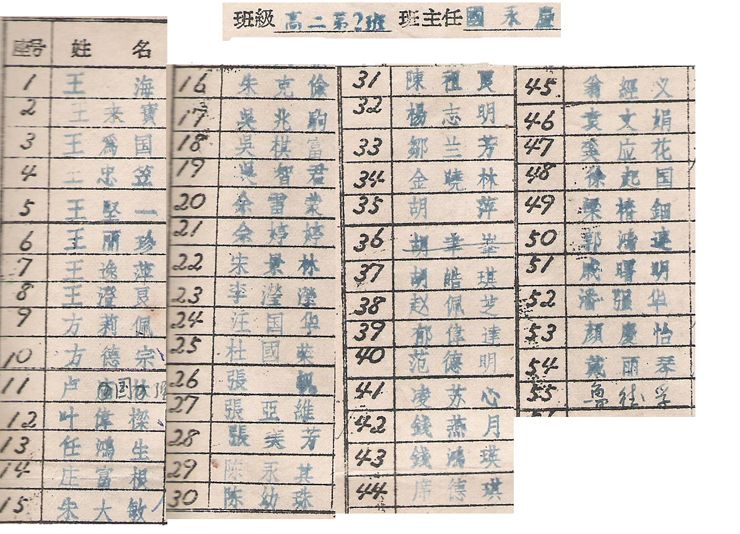 班級 高二第2班 班主任 國永慶
座号 姓名
1 王海
2 王来寶
3 王爲国
4 王忠笠
5 王堅一
6 王丽珍
7 王逸萍
8 王澄良
9 方莉佩
10 方德宗
11 卢国
12 叶偉樑
13 任鴻生
14 庄富根
15 朱大敏
16 朱克倫
17 吳兆駒
18 吳棋富
19 吳智君
20 余雷荣
21 余婷婷
22 朱景林
23 李瀅瀅
24 汪国华
25 杜國英
26 張帆
27 張亞維
28 張美芳
29 陈永其
30 陈幼珠
31 陳祖良
32 楊志明
33 鄒兰芳
34 金曉林
35 胡萍
36 胡華崟
37 胡皓琪
38 赵佩芝
39 郁偉達
40 范德明
41 凌苏心
42 錢燕月
43 錢鴻瑛
44 席德琪
45. 翁經义
46 袁文娟
47 龚应花
48 徐起国
49 梁椿鈿
50 郭鴻達
51 戚曙明
52 潘强华
53 顏慶怡
54 戴丽琴
55 魯